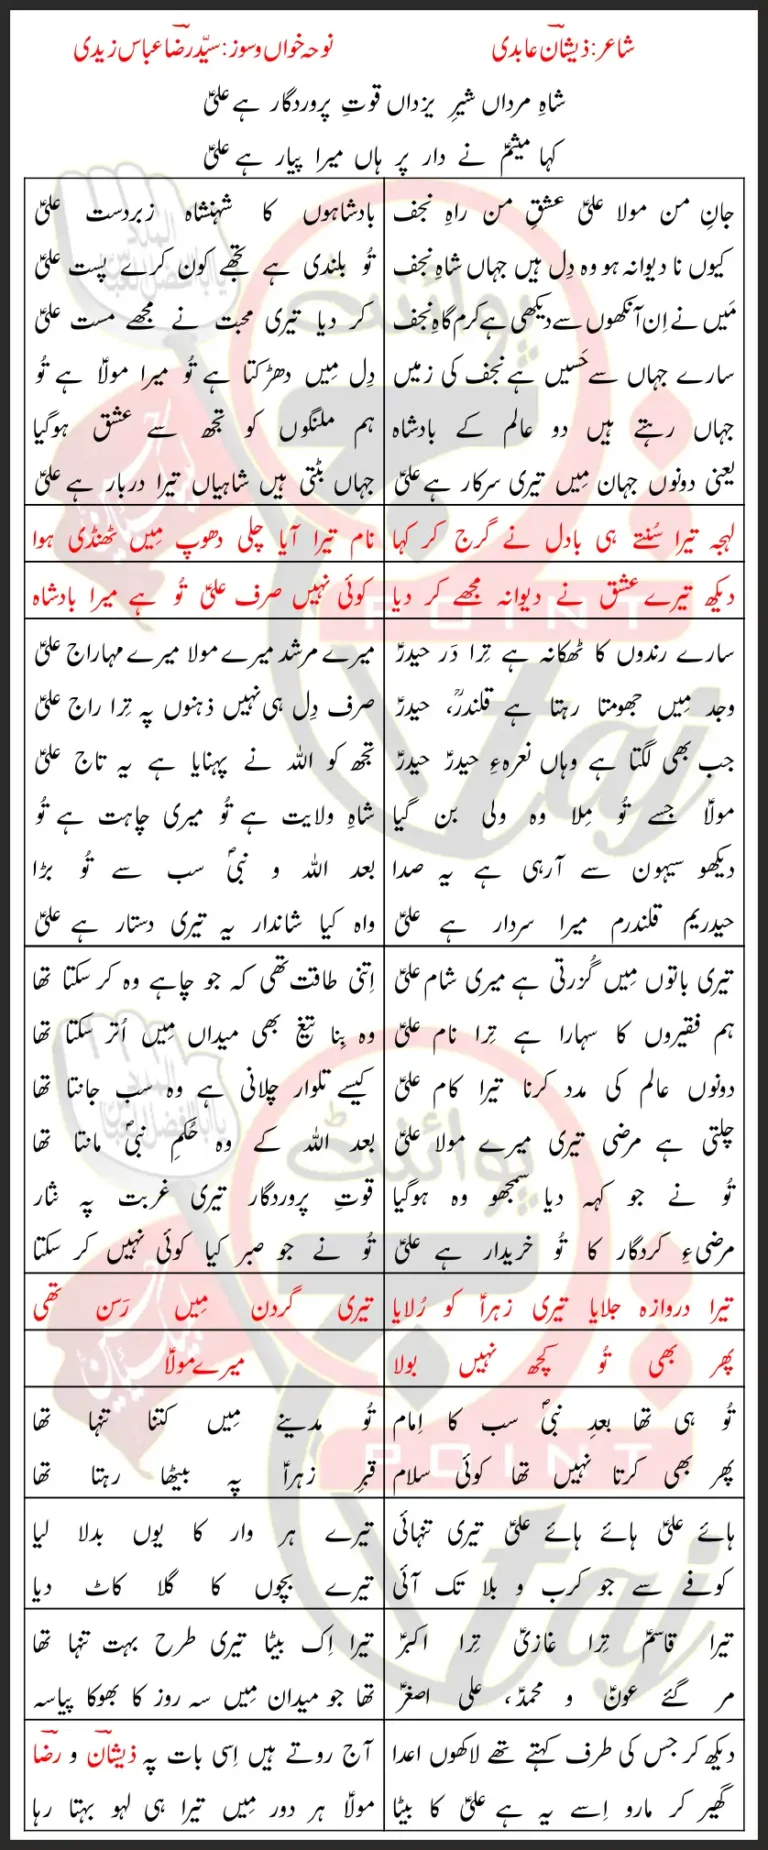 شاعر: ذیشان عابدی
نوحہ خواں و سوز: سیّد رضا عباس زیدی
شاہِ مرداں شیرِ یزداں قوتِ پروردگار ہے علیؑ
کہا میثمؑ نے دار پر ہاں میرا پیار ہے علیؑ
جانِ من مولا علیؑ عشقِ من راہِ نجف
کیوں نا دیوانہ ہو وہ دِل ہیں جہاں شاہِ نجف
مَیں نے اِن آنکھوں سے دیکھی ہے کرم گاہِ نجف
سارے جہاں سے حَسیں ہے نجف کی زمیں
جہاں رہتے ہیں دو عالم کے بادشاہ
یعنی دونوں جہان مِیں تیری سرکار ہے علیؑ
بادشاہوں کا شہنشاہ زبردست علیؑ
تُو بلندی ہے تجھے کون کرے پست علیؑ
کر دیا تیری محبت نے مجھے مست علیؑ
دِل مِیں دھڑکتا ہے تُو میرا مولاؑ ہے تُو
ہم ملنگوں کو تجھ سے عشق ہوگیا
جہاں بٹتی ہیں شاہیاں تیرا دربار ہے علیؑ
لہجہ تیرا سُنتے ہی بادل نے گرج کر کہا
نام تیرا آیا چلی دھوپ مِیں ٹھنڈی ہوا
دیکھ تیرے عشق نے دیوانہ مجھے کر دیا
کوئی نہیں صرف علیؑ تُو ہے میرا بادشاہ
سارے رندوں کا ٹھکانہ ہے تِرا دَر حیدرؑ
وجد مِیں جھومتا رہتا ہے قلندرؒ، حیدرؑ
جب بھی لگتا ہے وہاں نعرہءِ حیدرؑ حیدرؑ
مولاؑ جسے تُو مِلا وہ ولی بن گیا
دیکھو سیہون سے آرہی ہے یہ صدا
حیدریم قلندرم میرا سردار ہے علیؑ
میرے مرشد میرے مولا میرے مہاراج علیؑ
صرف دِل ہی نہیں ذہنوں پہ تِرا راج علیؑ
تجھ کو اللہ نے پہنایا ہے یہ تاج علیؑ
شاہِ ولایت ہے تُو میری چاہت ہے تُو
بعد اللہ و نبیؐ سب سے تُو بڑا
واہ کیا شاندار یہ تیری دستار ہے علیؑ
تیری باتوں مِیں گُزرتی ہے میری شام علیؑ
ہم فقیروں کا سہارا ہے تِرا نام علیؑ
دونوں عالم کی مدد کرنا تیرا کام علیؑ
چلتی ہے مرضی تیری میرے مولا علیؑ
تُو نے جو کہہ دیا سمجھو وہ ہوگیا
مرضیءِ کردگار کا تُو خریدار ہے علیؑ
اِتنی طاقت تھی کہ جو چاہے وہ کر سکتا تھا
وہ بِنا تیغ بھی میداں مِیں اُتر سکتا تھا
کیسے تلوار چلانی ہے وہ سب جانتا تھا
بعد اللہ کے وہ حُکمِ نبیؐ مانتا تھا
قوتِ پروردگار تیری غربت پہ نثار
تُو نے جو صبر کیا کوئی نہیں کر سکتا
تیرا دروازہ جلایا تیری زہراؑ کو رُلایا
تیری گردن مِیں رَسن تھی
پھر بھی تُو کچھ نہیں بولا
میرے مولاؑ
تُو ہی تھا بعدِ نبیؐ سب کا اِمام
پھر بھی کرتا نہیں تھا کوئی سلام
تُو مدینے مِیں کتنا تنہا تھا
قبرِ زہراؑ پہ بیٹھا رہتا تھا
ہائے علیؑ ہائے ہائے علیؑ تیری تنہائی
کوفے سے جو کرب و بلا تک آئی
تیرے ہر وار کا یوں بدلا لیا
تیرے بچوں کا گلا کاٹ دیا
تیرا قاسمؑ تِرا غازیؑ تِرا اکبرؑ
مر گئے عونؑ و محمدؑ، علی اصغرؑ
تیرا اِک بیٹا تیری طرح بہت تنہا تھا
تھا جو میدان مِیں سہ روز کا بھوکا پیاسہ
دیکھ کر جس کی طرف کہتے تھے لاکھوں اعدا
گھیر کر مارو اِسے یہ ہے علیؑ کا بیٹا
آج روتے ہیں اِسی بات پہ ذیشان و رضا
مولاؑ ہر دور مِیں تیرا ہی لہو بہتا رہا
پوائنٹ
POINT
taj